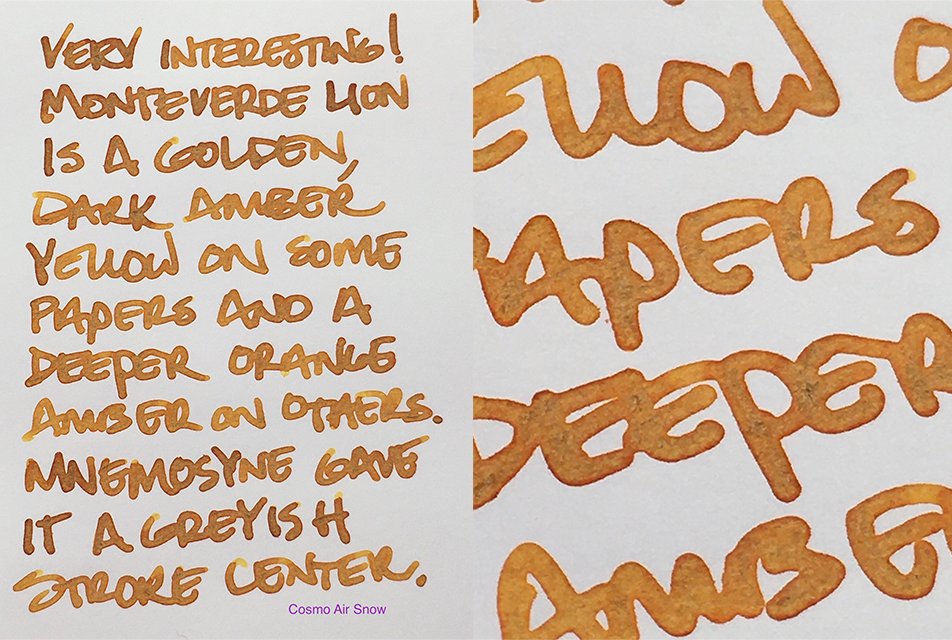 VERY INTERESTING!
MONTEVERDE LION
IS A GOLDEN,
DARK AMBER
YELLOW ON SOME
PAPERS AND A
DEEPER ORANGE
AMBER ON OTHERS.
MNEMOSYNE GAVE
IT A GREYISH
STROKE CENTER.
Cosmo Air Snow
ELLOW O
PAPERS
DEEPER
AMBE